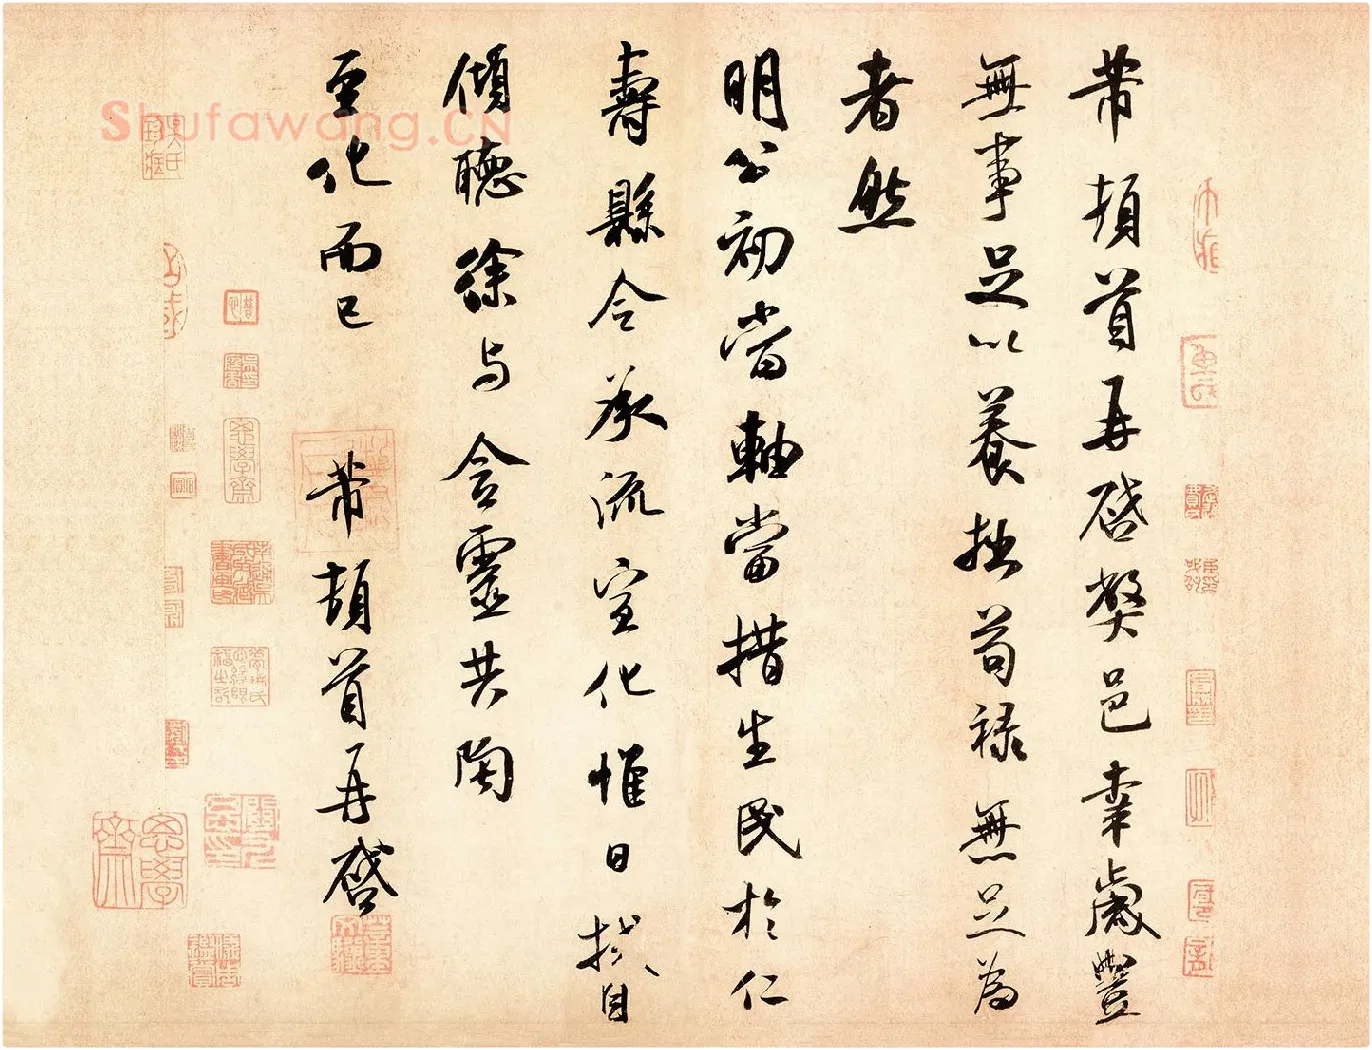 芾頓首再啓弊邑幸歲豐
無事足以養拙苟禄無足為
者然
明公初當軸當措生民於仁
壽縣令承流宣化惟日拭目
傾聽徐与含靈共陶
至化而已 芾頓首再啓
Shufawang.CN